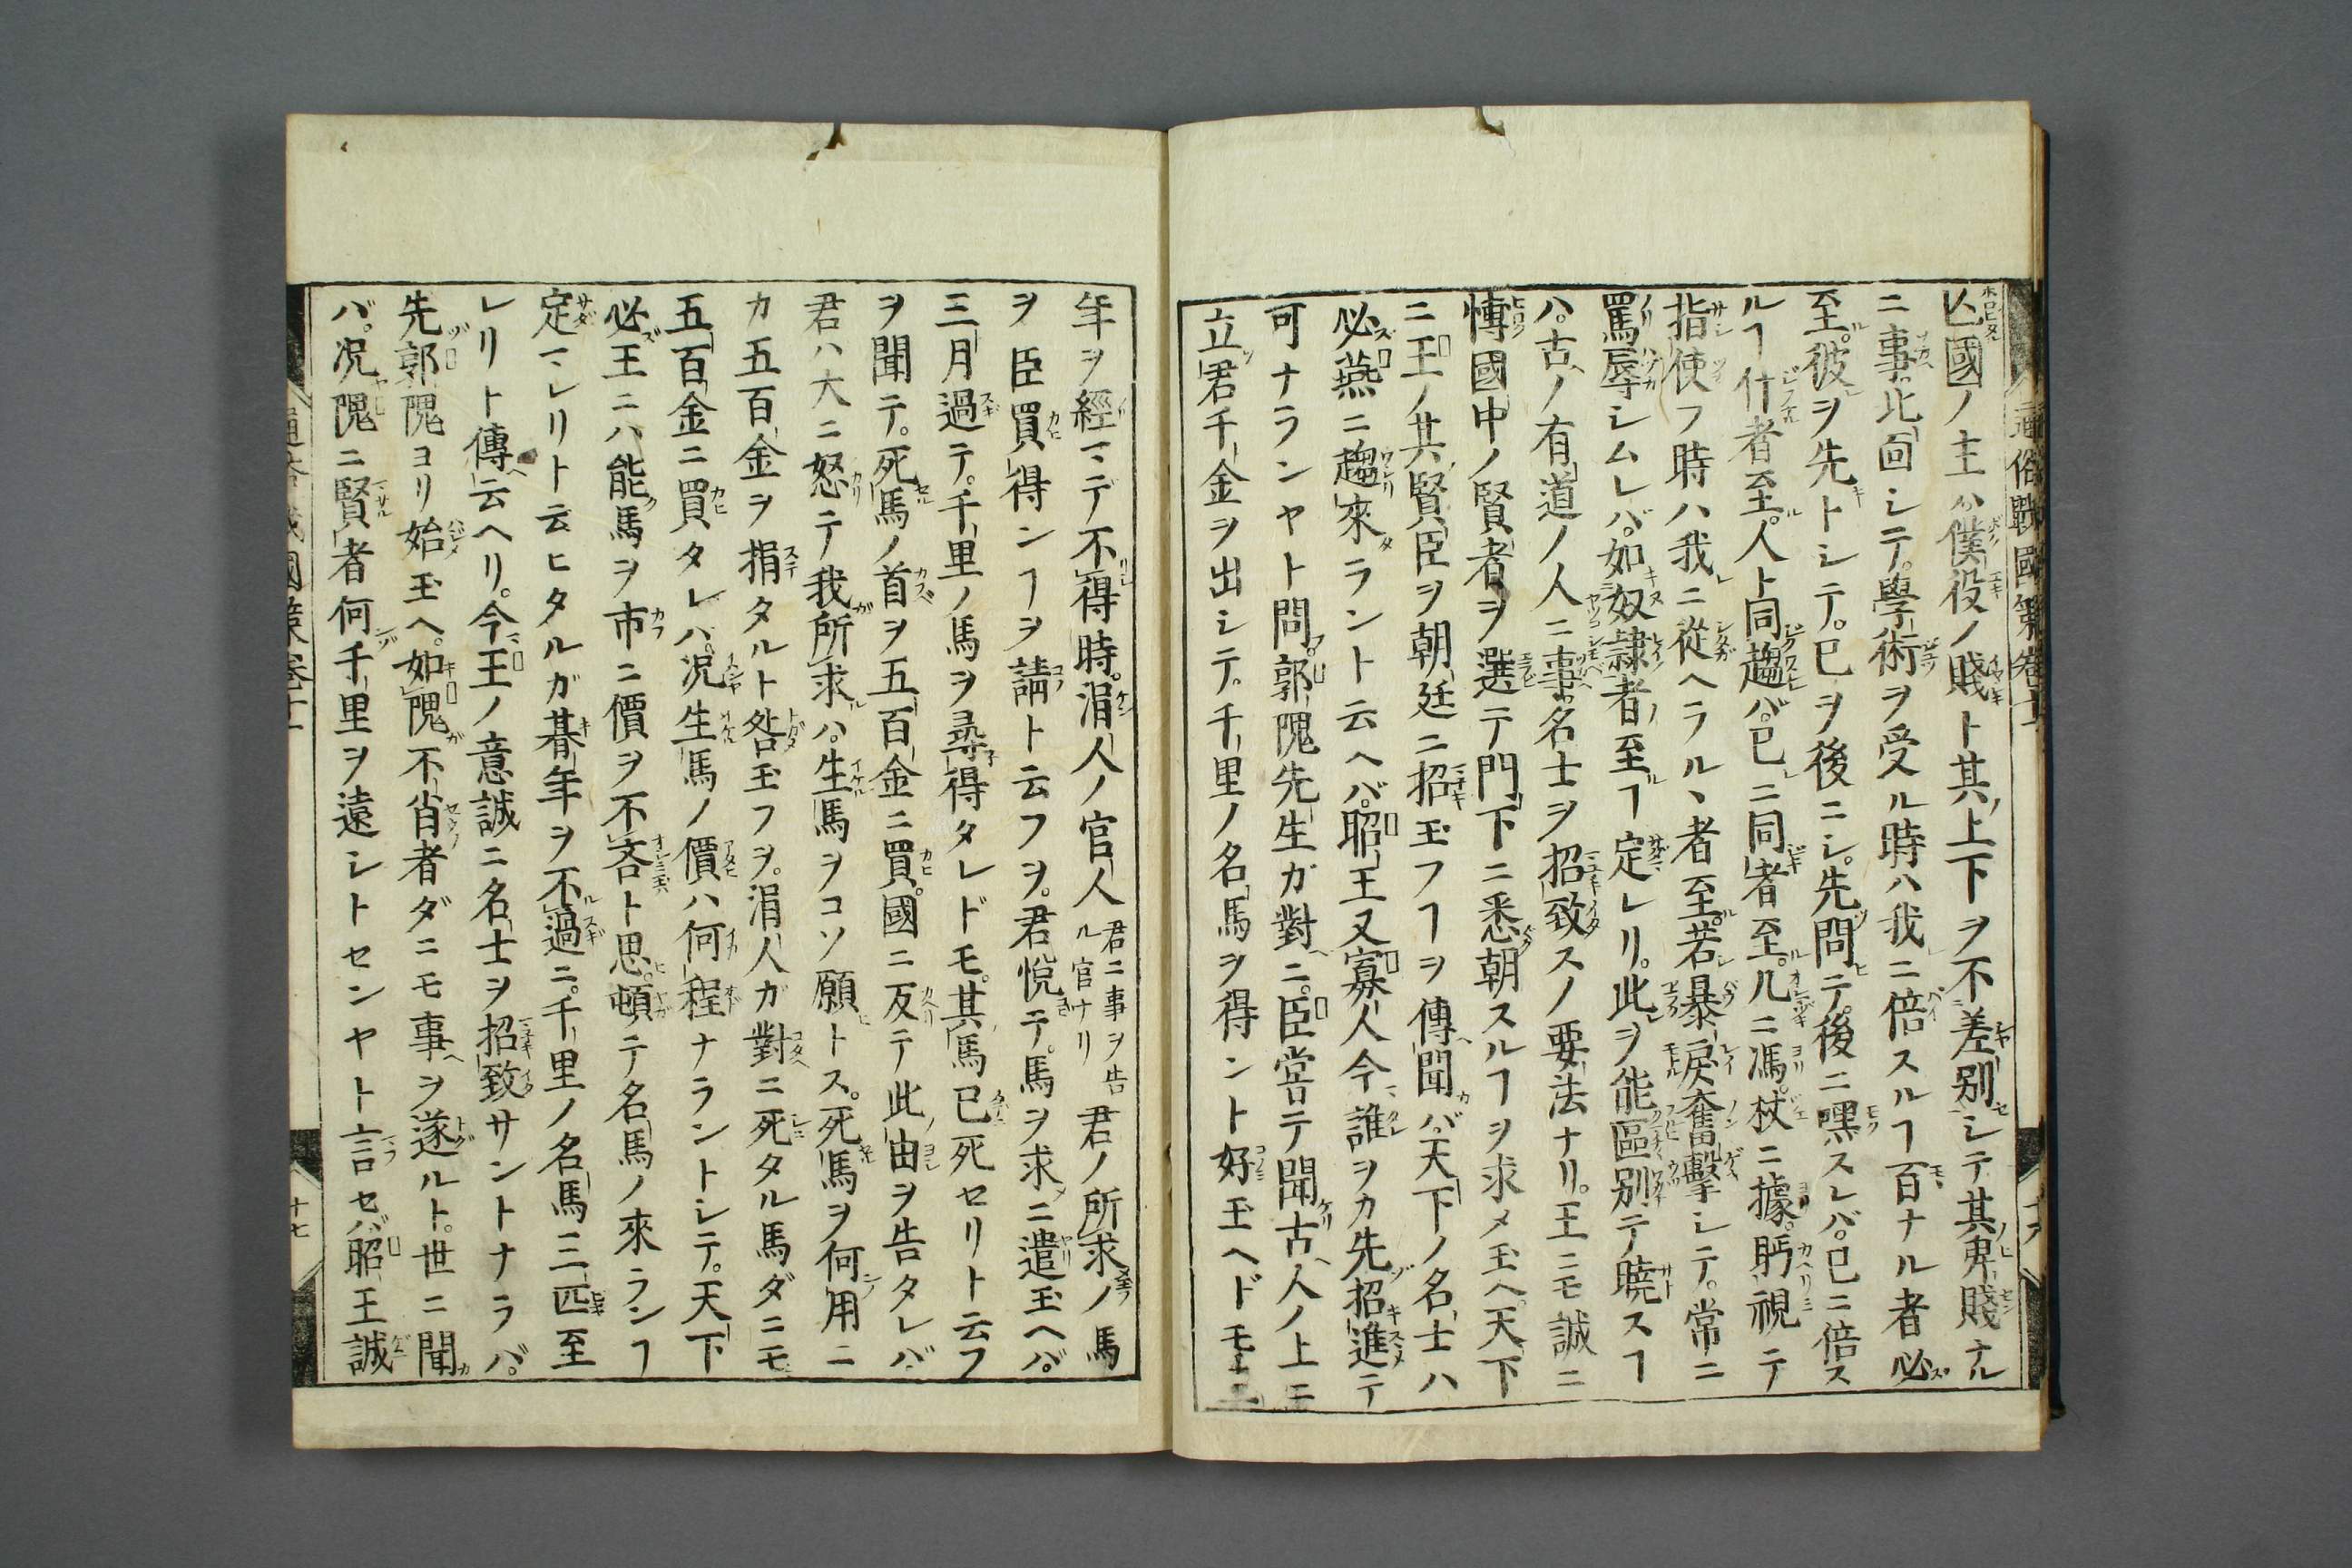 亾國ノ主ハ僕役ノ賤ト其上下ヲ不差別シテ其卑賤ナル
ニ事。北面シテ。學術ヲ受ル時ハ我ニ倍スルヿ百ナル者必
至。彼ヲ先トシテ。已ヲ後ニシ。先問テ。後ニ嘿スレバ。已ニ倍ス
ルヿ什者至。人ト同趨バ。已ニ同者至。几ニ馮。杖ニ據。眄視テ
指使フ時ハ我ニ從ヘラルヽ者至。若暴戾奮擊シテ。常ニ
罵辱シムレバ。如奴隷者至ヿ定レリ。此ヲ能區別テ曉スヿ
ハ。古ノ有道ノ人ニ事。名士ヲ招致スノ要法ナリ。王ニモ誠ニ
慱國中ノ賢者ヲ選テ門下ニ悉朝スルヿヲ求メ玉ヘ。天下
ニ王ノ其賢臣ヲ朝廷ニ招玉フヿヲ傳聞バ。天下ノ名士ハ
必燕ニ趨來ラント云ヘバ。昭王又寡人今誰ヲカ先招進テ
可ナランヤト問。郭隗先生ガ對ニ。臣嘗テ聞古人ノ上ニ
立君千金ヲ出シテ。千里ノ名馬ヲ得ント好玉ヘドモ。
年ヲ經マデ不得時。涓人ノ官人君ニ事ヲ告ル官ナリ君ノ所求ノ馬
ヲ臣買得ンヿヲ請ト云フヲ。君悅テ。馬ヲ求ニ遣玉ヘバ。
三月過テ。千里ノ馬ヲ尋得タレドモ。其馬已死セリト云フ
ヲ聞テ。死馬ノ首ヲ五百金ニ買。國ニ反テ此由ヲ告タレバ
君ハ大ニ怒テ我所求ハ。生馬ヲコソ願トス。死馬ヲ何用ニ
カ五百金ヲ捐タルト咎玉フヲ。涓人ガ對ニ死タル馬ダニモ
五百金ニ買タレバ。況生馬ノ價ハ何程ナラントシテ。天下
必王ニハ能馬ヲ市ニ價ヲ不吝ト思。頓テ名馬ノ來ランヿ
定マレリト云ヒタルガ朞年ヲ不過ニ。千里ノ名馬三匹至
レリト傳云ヘリ。今王ノ意誠ニ名士ヲ招致サントナラバ。
先郭隗ヨリ始玉ヘ。如隗不肖者ダニモ事ヲ遂ルト。世ニ聞
バ。況隗ニ賢者何千里ヲ遠シトセンヤト言セバ昭王誠
十七